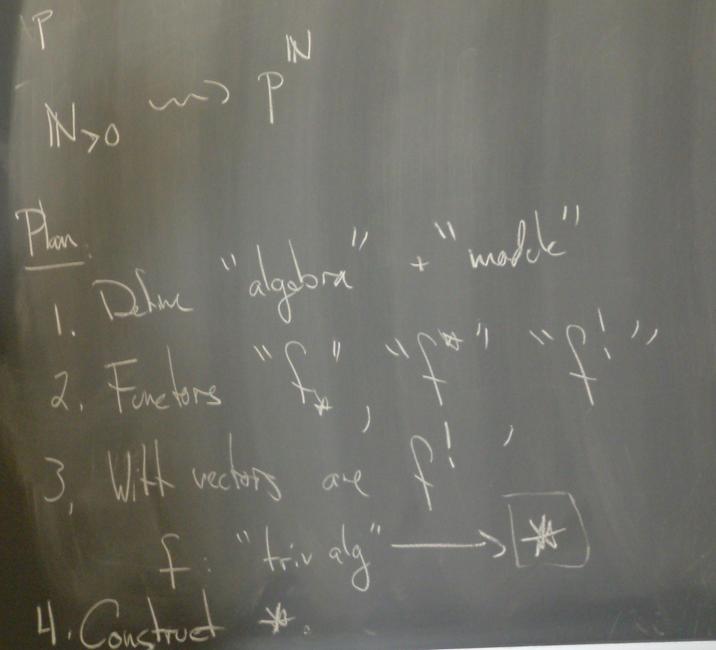 P
ℕ>0 ⇝ P^ℕ
Plan:
1. Define "algebra" + "module"
2. Functors "f_*", "f^*", "f^!"
3, Witt vectors are f^!,
f: "triv alg" ⟶ *
4. Construct *.